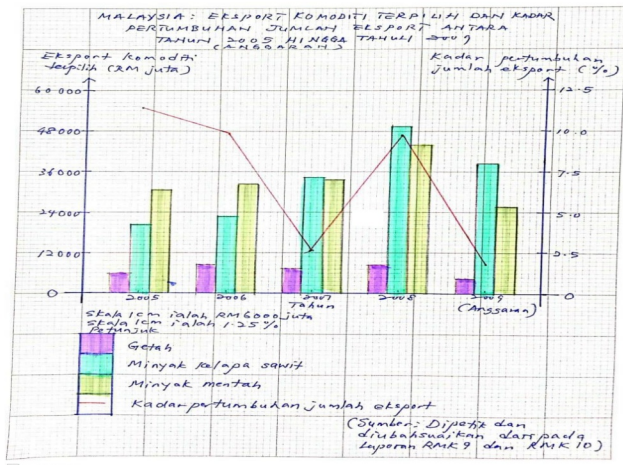 MALAYSIA: EKSPORT KOMODITI TERPILIH DAN KADAR
PERTUMBUHAN JUMLAH EKSPORT ANTARA
TAHUN 2005 HINGGA TAHUN 2009
(ANGGARAN)
Eksport komoditi
terpilih (RM juta)
Kadar pertumbuhan
jumlah eksport (%)
60 000
48 000
36 000
24 000
12 000
0
12.5
10.0
7.5
5.0
2.5
0
2005
2006
2007
2008
2009
Tahun
(Anggaran)
Skala 1cm ialah RM6000 juta
Skala 1cm ialah 1.25%
Petunjuk
Getah
Minyak kelapa sawit
Minyak mentah
Kadar pertumbuhan jumlah eksport
(Sumber: Dipetik dan
diubahsuaikan daripada
Laporan RMK9 dan RMK10)